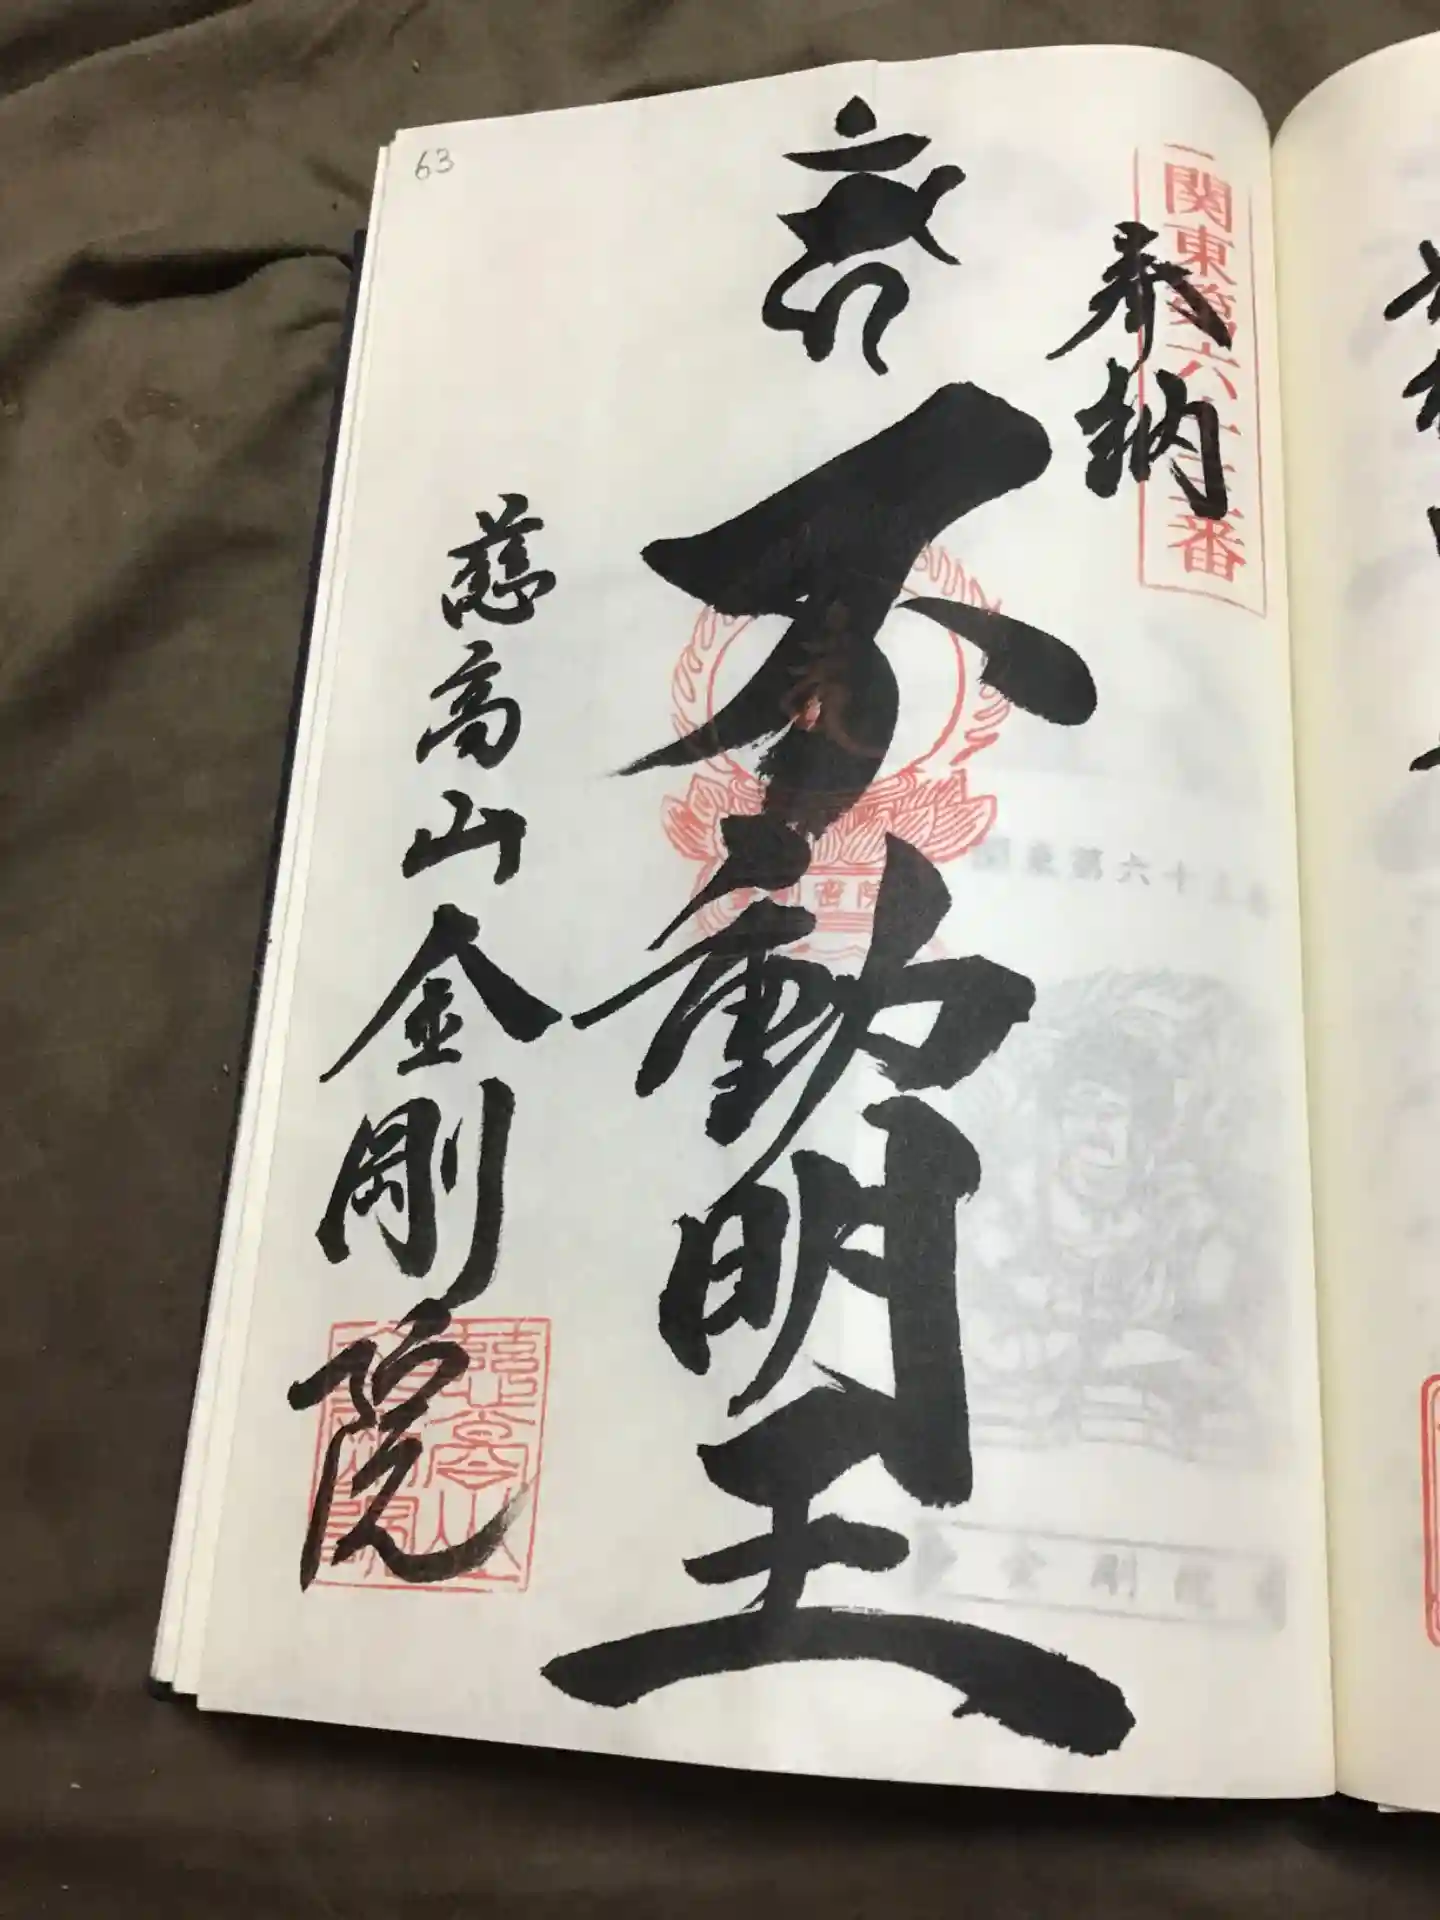 63
関東第六十三番
奉納
不動明王
慈高山金剛院
関東第六十三番
金剛院